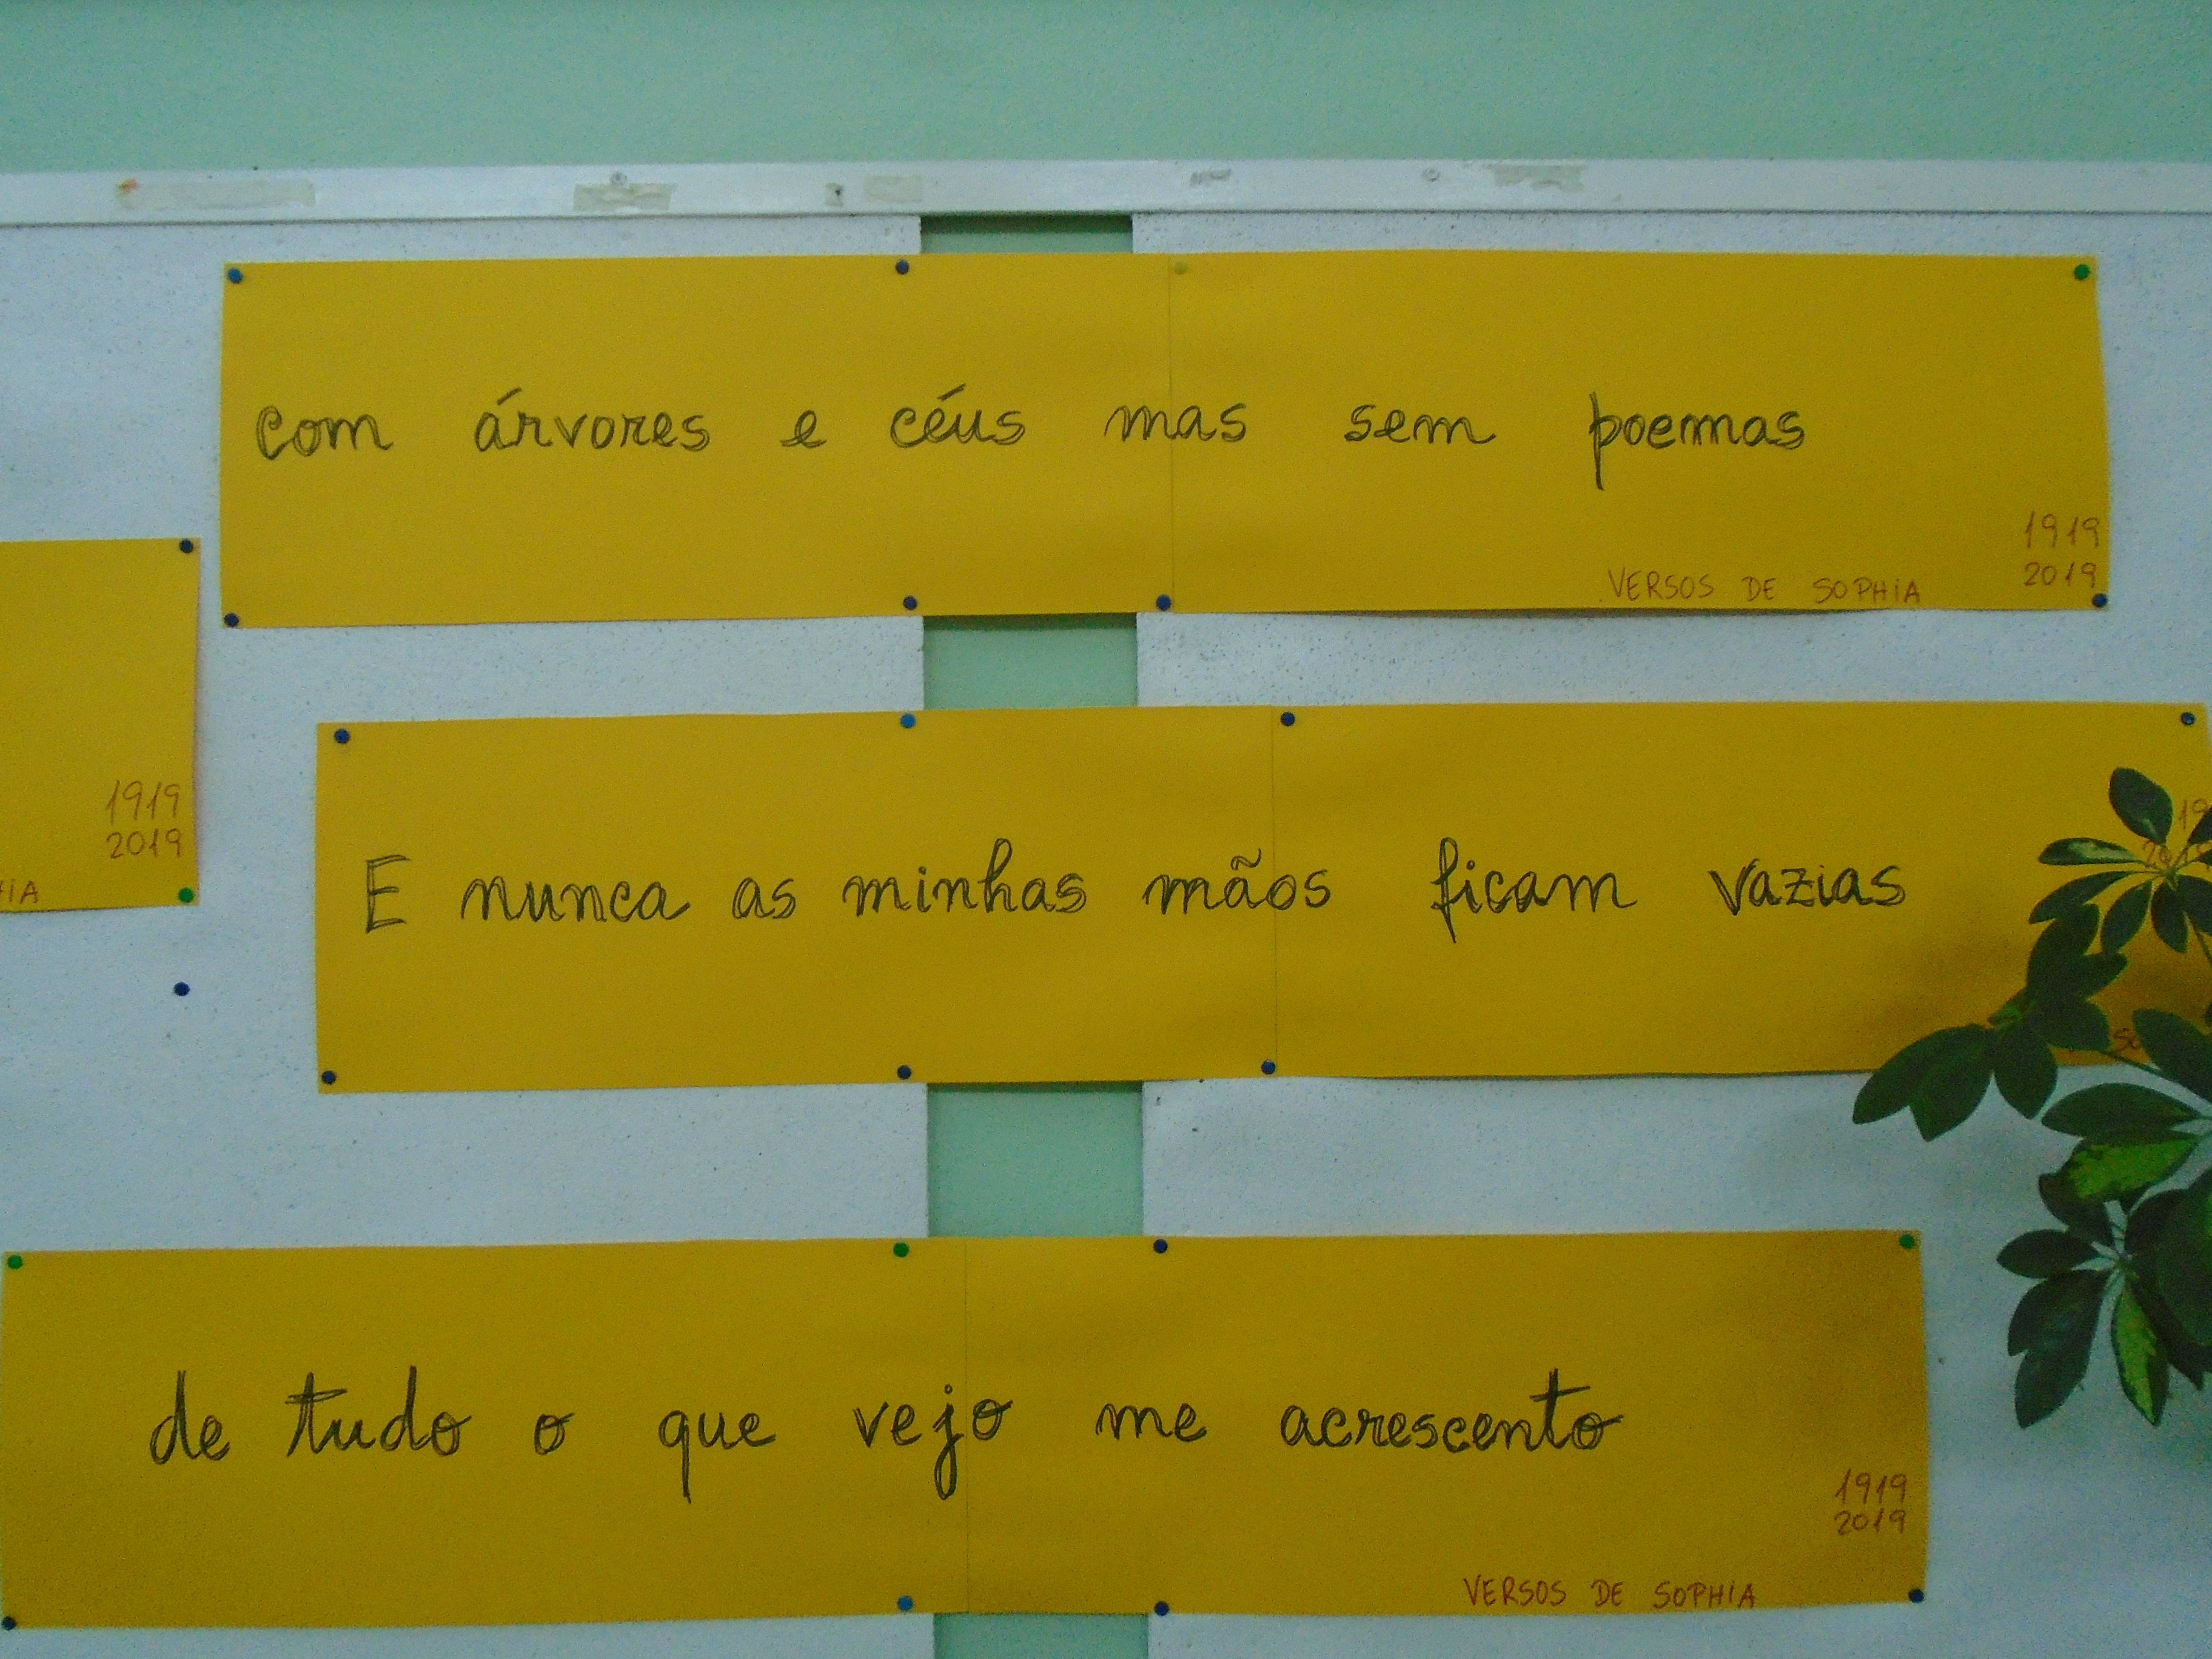 com árvores e céus mas sem poemas
1919
2019
VERSOS DE SOPHIA
1919
2019
E nunca as minhas mãos ficam vazias
de tudo o que vejo me acrescento
1919
2019
VERSOS DE SOPHIA